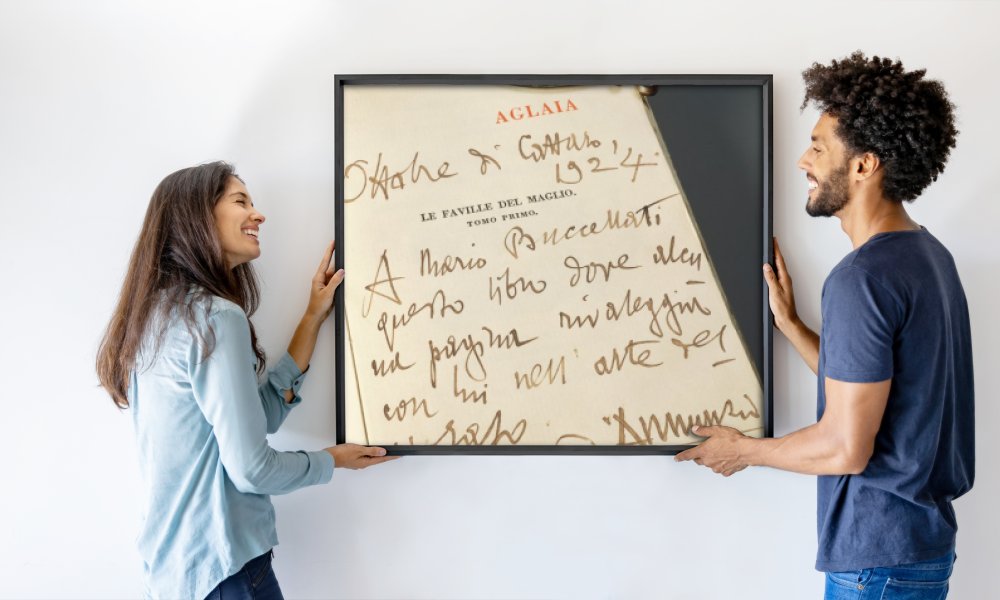 AGLAIA
Ottobre di Cattaro,
1924.
LE FAVILLE DEL MAGLIO.
TOMO PRIMO.
A Mario Buccellati
questo libro dove alcu
na pagina rivaleggia
con lui nell'arte del